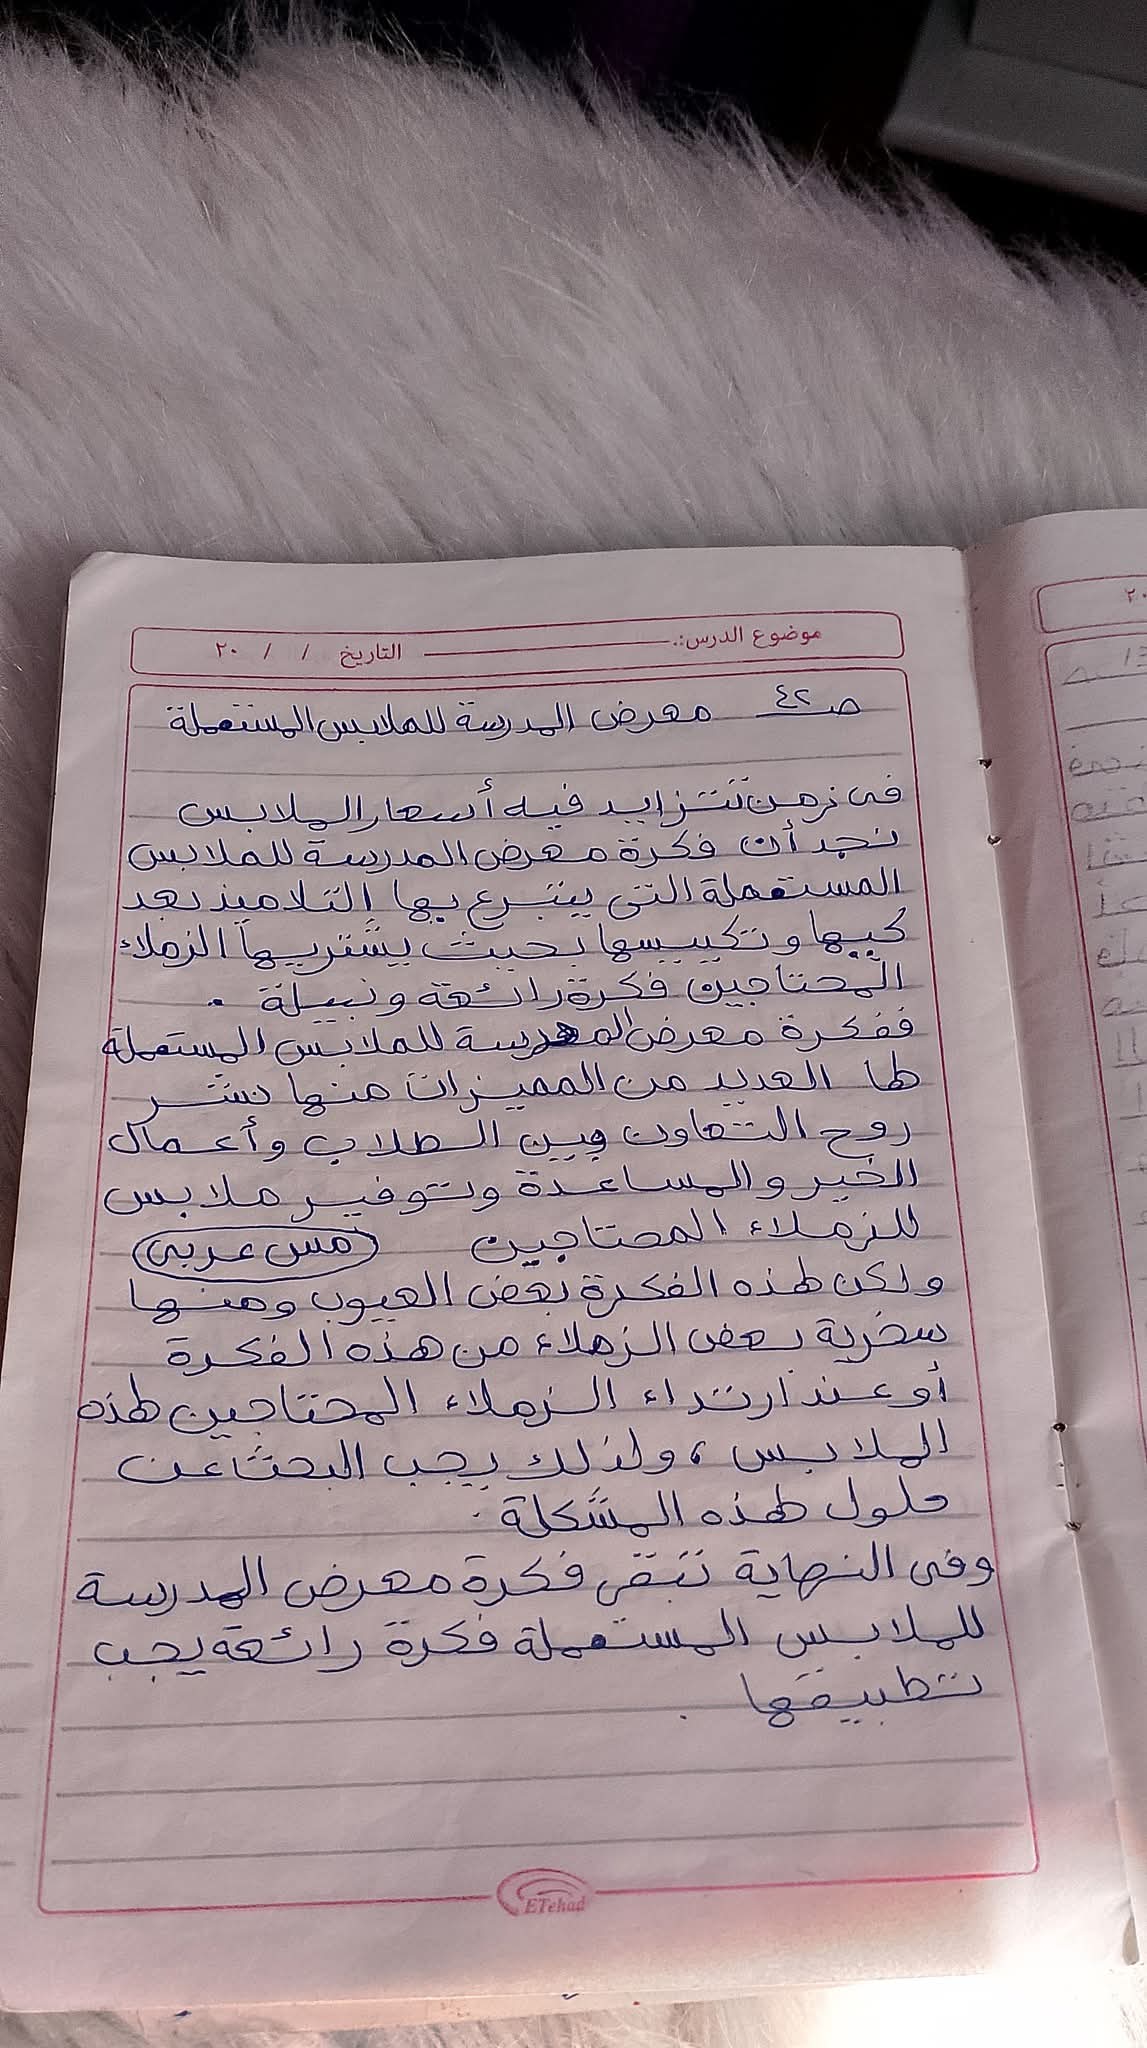 موضوع الدرس:. التاريخ / / ٢٠
صـ ٤٢ معرض المدرسة للملابس المستعملة
فى زمن تتزايد فيه أسعار الملابس
نجد أن فكرة معرض المدرسة للملابس
المستعملة التى يتبرع بها التلاميذ بعد
كيها وتكييسها بحيث يشتريها الزملاء
المحتاجين فكرة رائعة ونبيلة .
ففكرة معرض المدرسة للملابس المستعملة
لها العديد من المميزات منها نشر
روح التعاون وبين الطلاب وأعمال
الخير والمساعدة وتوفير ملابس
للزملاء المحتاجين مس عربى
ولكن لهذه الفكرة بعض العيوب ومنها
سخرية بعض الزملاء من هذه الفكرة
أو عند ارتداء الزملاء المحتاجين لهذه
الملابس ، ولذلك يجب البحث عن
حلول لهذه المشكلة .
وفى النهاية تبقى فكرة معرض المدرسة
للملابس المستعملة فكرة رائعة يجب
تطبيقها .
ETehad